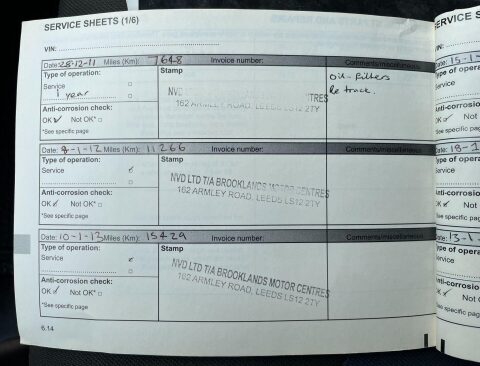 SERVICE SHEETS (1/6)
VIN:
Date: 28-12-11 Miles (Km): 7648 Invoice number: Comments/miscellaneous
Type of operation: Stamp
Service
1 year
Oil-Filters
NVD MOTOR CENTRES
162 ARMLEY ROAD, LEEDS LS12 2TY
Anti-corrosion check:
OK ✓ Not OK* □
*See specific page
Date: 8-1-12 Miles (Km): 11266 Invoice number: Comments/miscellaneous
Type of operation: Stamp
Service
NVD LTD T/A BROOKLANDS MOTOR CENTRES
162 ARMLEY ROAD, LEEDS LS12 2TY
Anti-corrosion check:
OK ✓ Not OK* □
*See specific page
Date: 10-1-13 Miles (Km): 15429 Invoice number: Comments/miscellaneous
Type of operation: Stamp
Service
NVD LTD T/A BROOKLANDS MOTOR CENTRES
162 ARMLEY ROAD, LEEDS LS12 2TY
Anti-corrosion check:
OK ✓ Not OK* □
*See specific page
6.14
SERVICE S
VIN:
Date: 15-1
Type of opera
Service
Anti-corrosio
OK Not
*See specific
Date: 18-1
Type of oper
Service
Anti-corrosi
OK Not
*See specific
Date: 13-1
Type of oper
Service
Anti-corrosi
OK Not
*See specific